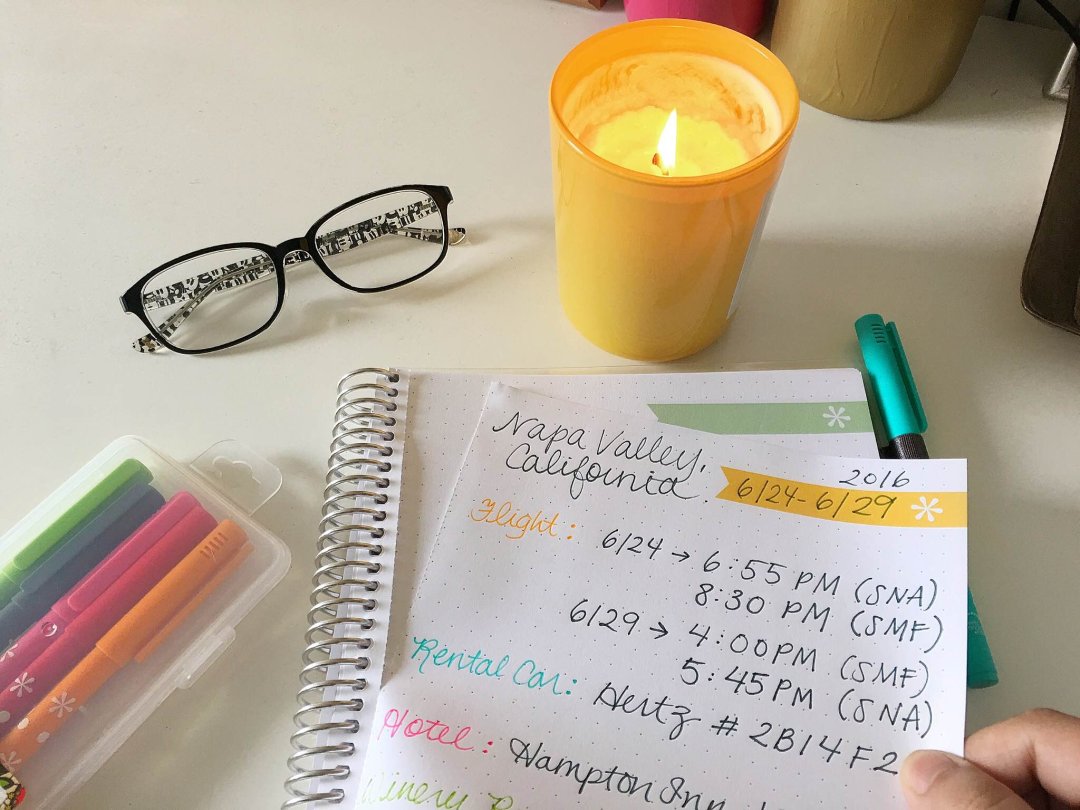 Napa Valley,
California
2016
6/24-6/29
Flight: 6/24 → 6:55 PM (SNA)
8:30 PM (SMF)
6/29 → 4:00PM (SMF)
5:45PM (SNA)
Rental Car: Hertz # 2B14F2
Hotel: Hampton Inn
Winery